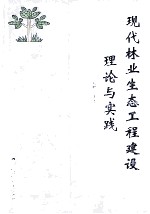 现代林业生态工程建设
理论与实践